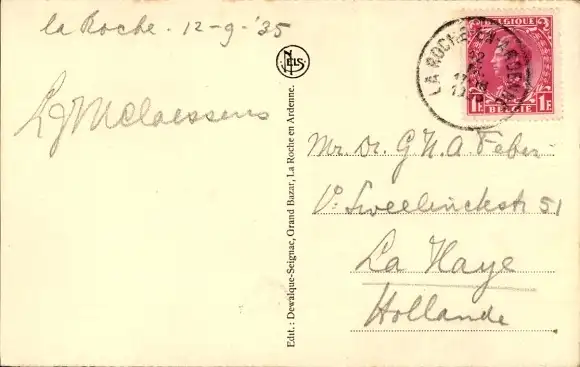 la Roche. 12-9-'35
LgMClaessens
NELS
Edit.: Dewalque-Seignac, Grand Bazar, La Roche en Ardenne.
BELGIQUE
1F BELGIE 1F
LA ROCHE EN ARDENNE
12
Mr. Dr. G.H.A. Feber
V: Sweelinckstr 51
La Haye
Hollande